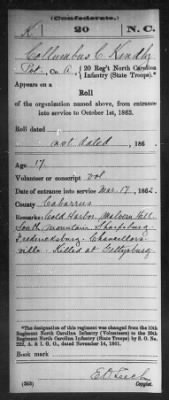 (Confederate.)
K 20 N.C.
Collumbus C. Kindly
Pvt, Co. A, 20 Reg't North Carolina
Infantry (State Troops).*
Appears on a
Roll
of the organization named above, from entrance
into service to October 1st, 1863.
Roll dated
not dated, 186
Age 17.
Volunteer or conscript vol
Date of entrance into service Mar. 17, 1862.
County Cabarrus
Remarks: Cold Harbor, Malvern Hill.
South Mountain Sharpsburg
Fredericksburg. Chancellors-
ville. Killed at Gettysburg.
*The designation of this regiment was changed from the 10th
Regiment North Carolina Infantry (Volunteers) to the 20th
Regiment North Carolina Infantry (State Troops) by S. O. No.
222, A. & I. G. O., dated November 14, 1861.
Book mark
(583)
Copyist.